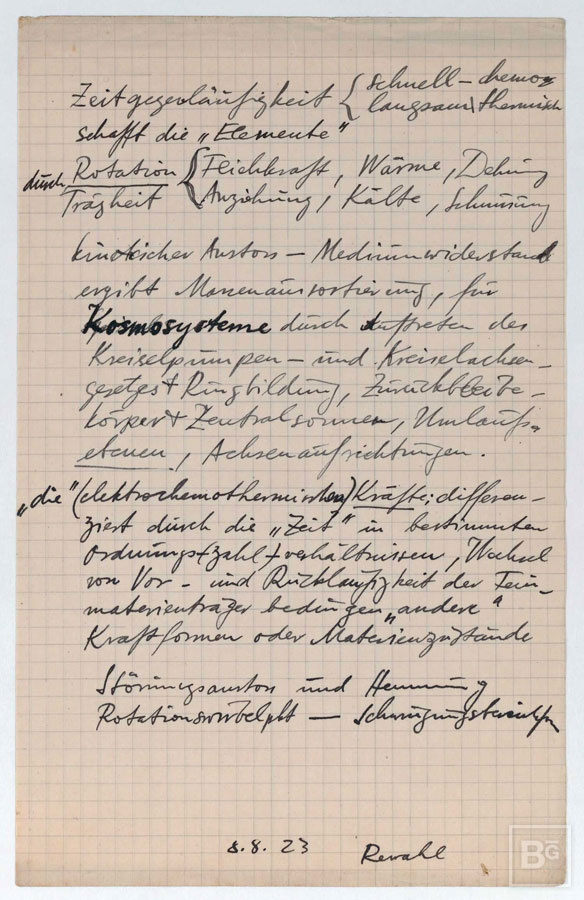 Zeitgegenläufigkeit { schnell – chemo-
langsam \ thermisch
schafft die „Elemente“
durch Rotation { Fliehkraft, Wärme, Dehnung
Trägheit Anziehung, Kälte, Schnürung
kinetischer Anstoss – Mediumwiderstand
ergibt Massenaussortierung, für
Kosmosysteme durch Auftreten des
Kreiselpumpen – und Kreiselachsen-
gesetzes + Ringbildung, Zurückbleibe-
körper + Zentralsonnen, Umlaufs-
ebenen, Achsenaufrichtungen.
„die“ (elektrochemothermischen) Kräfte: differen-
ziert durch die „Zeit“ in bestimmten
Ordnungs + zahl + verhältnissen, Wechsel
von Vor – und Rückläufigkeit der Fein-
materienträger bedingen „andere“
Kraftformen oder Materienzustände
Störungsanstoss und Hemmung
—
8.8.23 Rewahl
BG